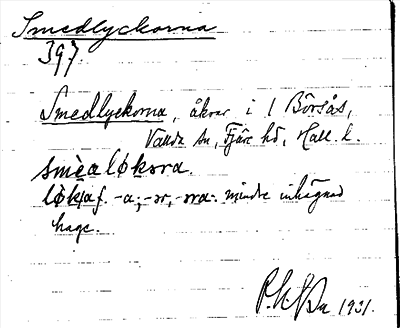 Smedlyckorna
397.
Smedlyckorna, åkrar i 1 Börsås,
Vallda sn, Fjäre hd, Hall. l.
smèalökora.
löka f. -a; -ər, -ora. mindre inhägnad
hage.
1931.